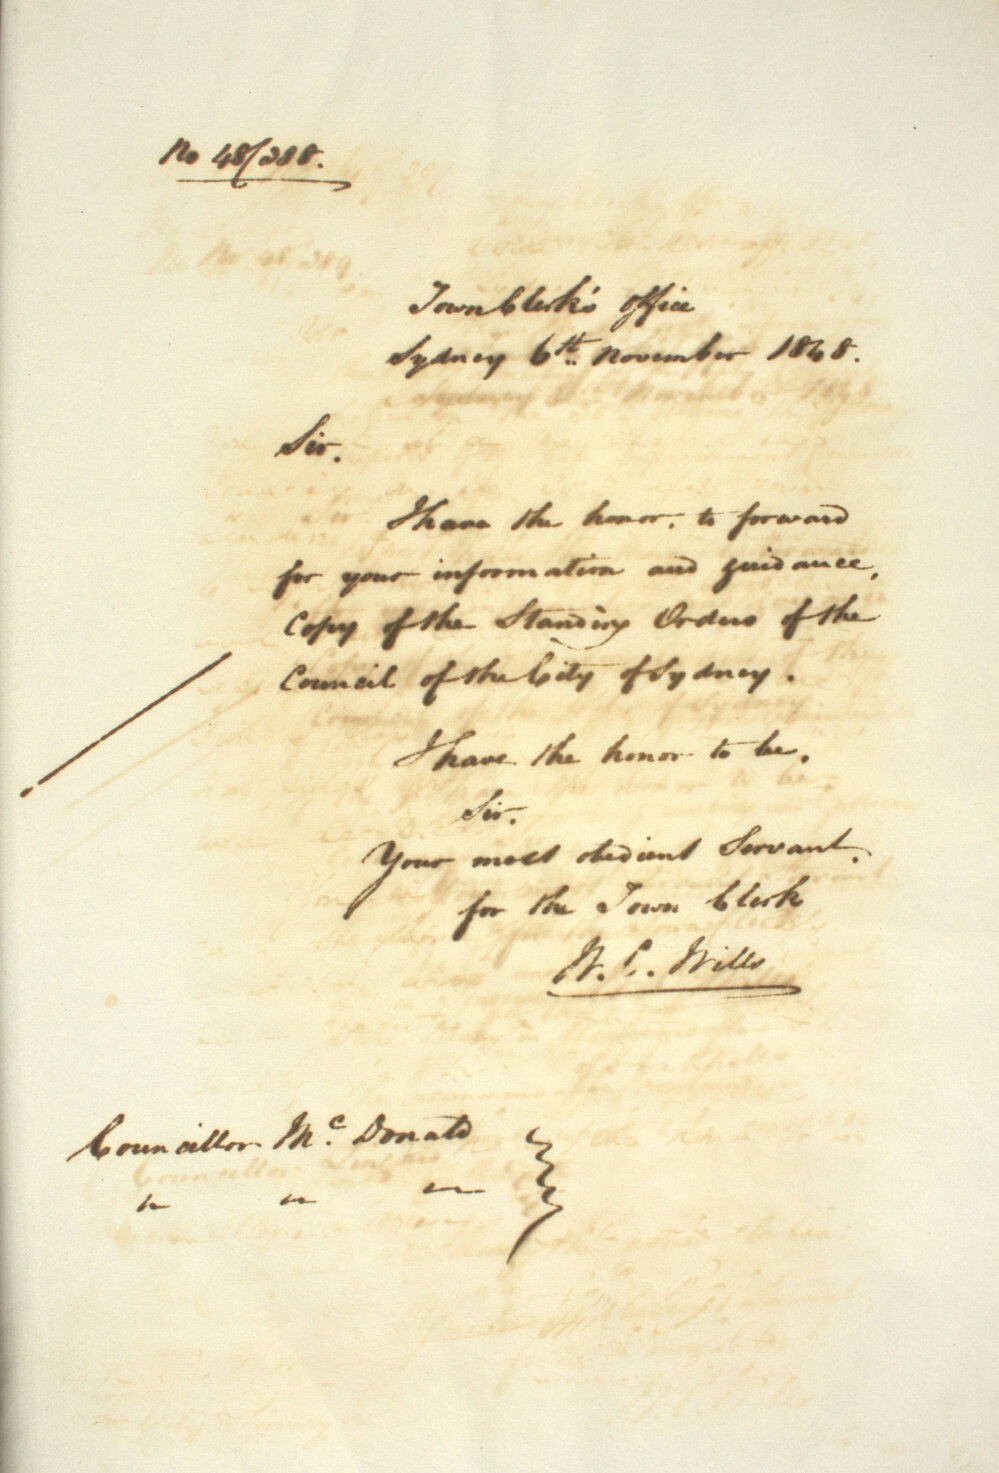 No 48/388.
Town Clerk's Office
Sydney 6th November 1848.
Sir.
I have the honor. to forward
for your information and guidance,
Copy of the Standing Orders of the
Council of the City of Sydney.
I have the honor to be,
Sir.
Your most obedient Servant.
for the Town Clerk
W. C. Wills
Councillor McDonald
" " "